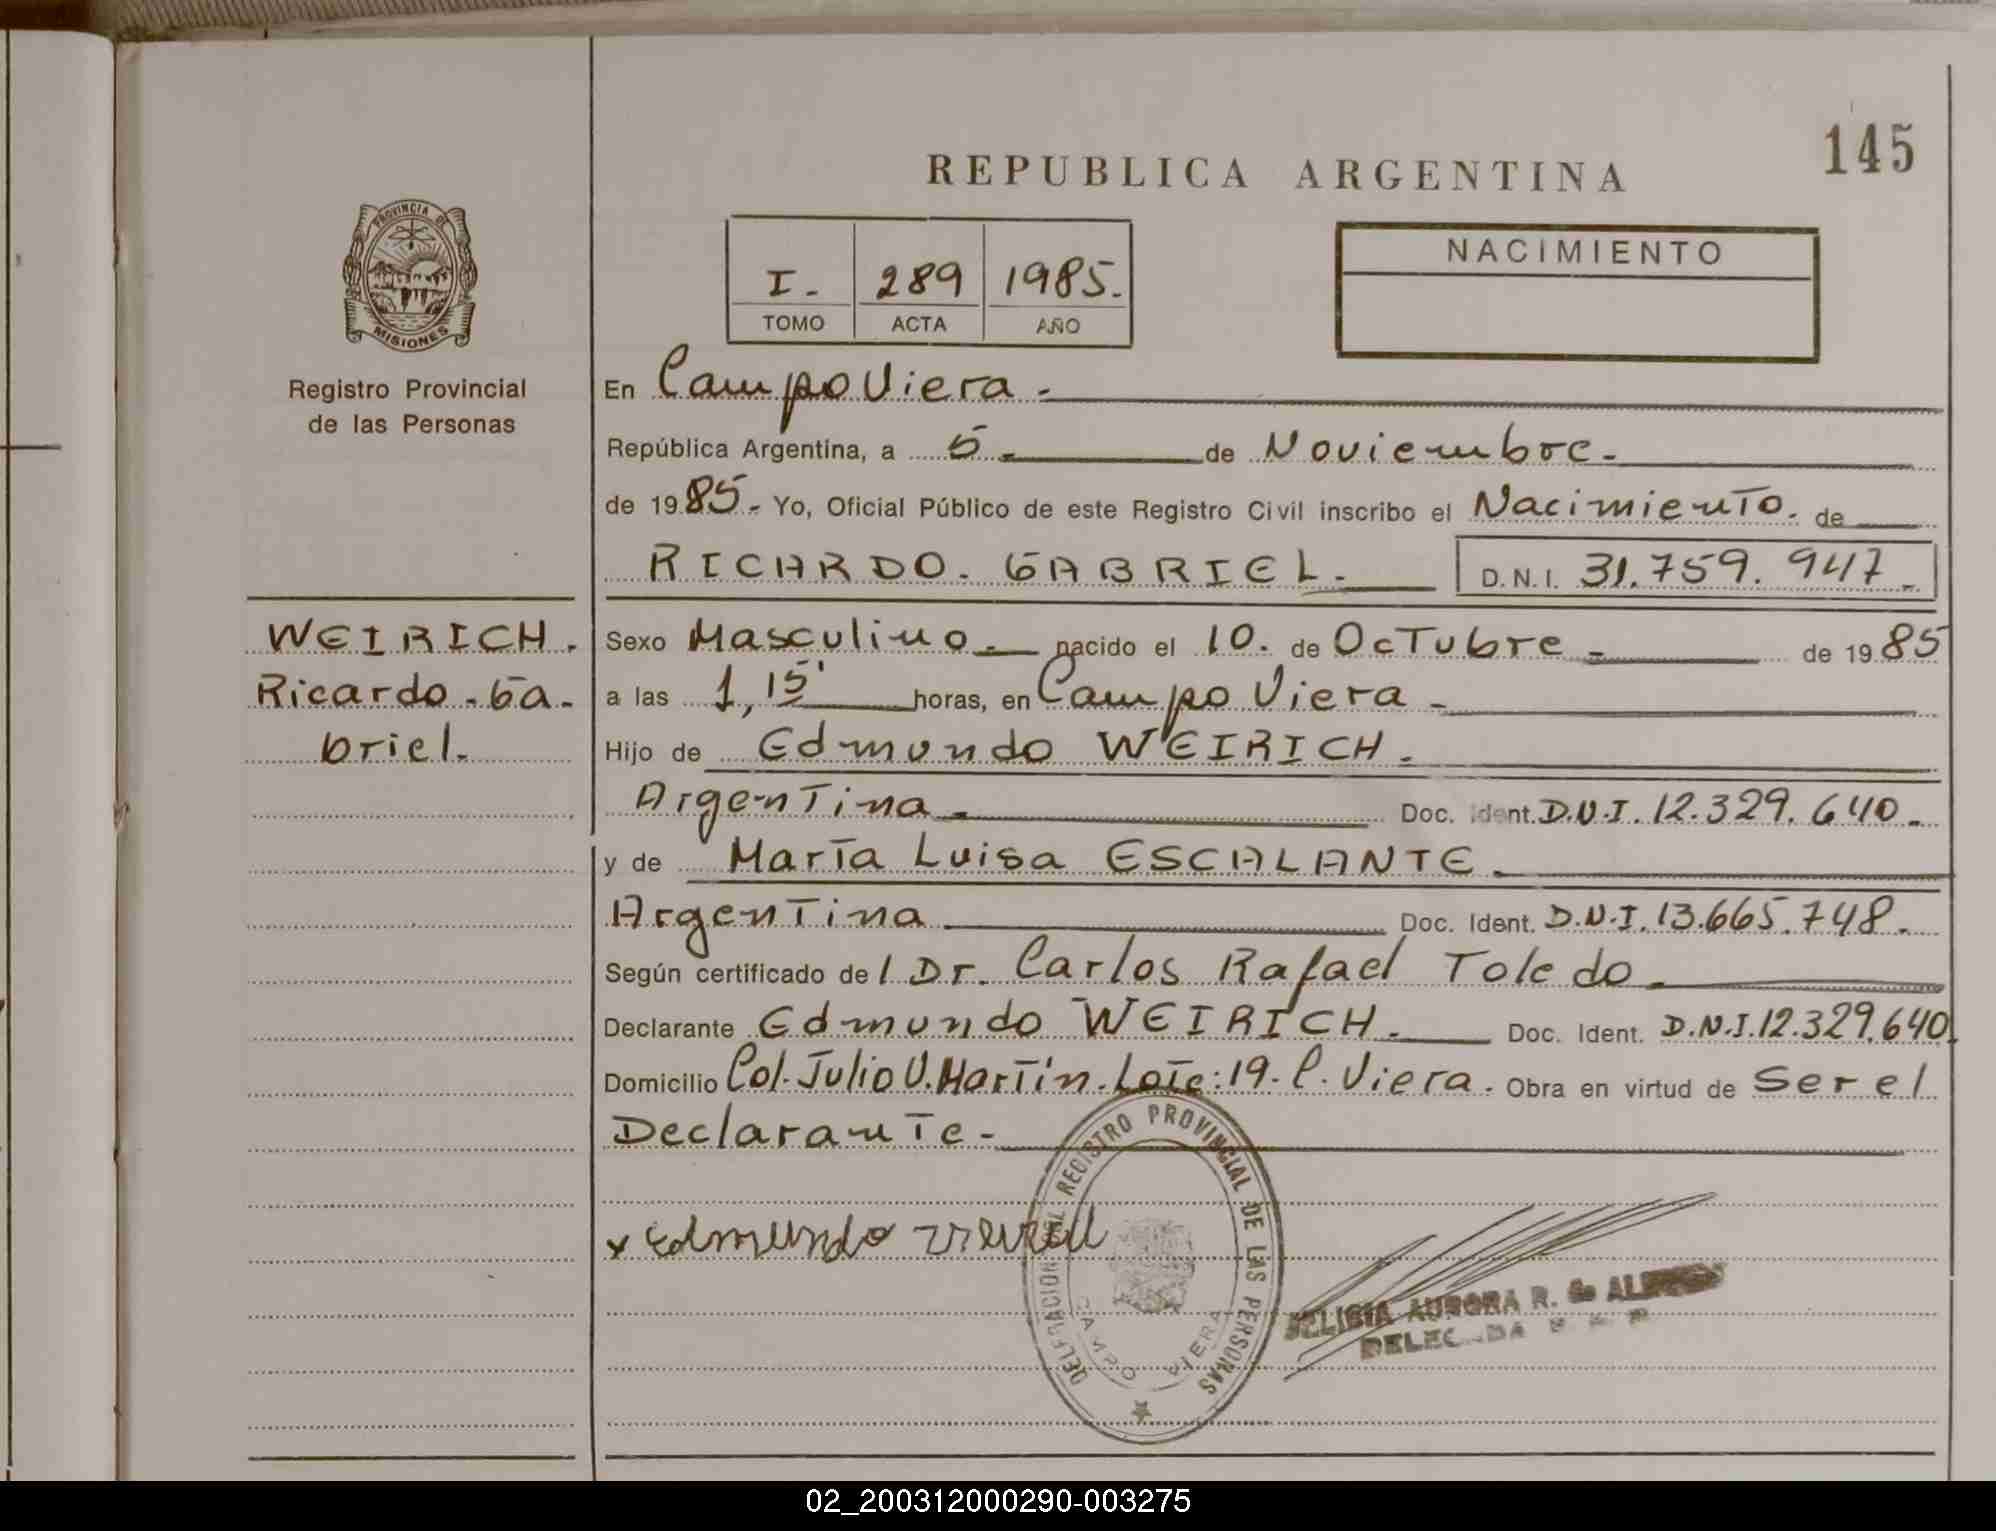 145
REPUBLICA ARGENTINA
PROVINCIA DE
MISIONES
Registro Provincial
de las Personas
I.- 289 1985.-
TOMO ACTA AÑO
NACIMIENTO
En Campo Viera.-
República Argentina, a 5.- de Noviembre.-
de 1985.- Yo, Oficial Público de este Registro Civil inscribo el Nacimiento. de
RICARDO. GABRIEL.- D.N.I. 31.759.947.-
WEIRICH.
Ricardo-Ga-
briel.-
Sexo Masculino.- nacido el 10. de Octubre.- de 1985
a las 1,15' horas, en Campo Viera.-
Hijo de Edmundo WEIRICH.-
Argentina.- Doc. Ident. D.N.I. 12.329.640.-
y de María Luisa ESCALANTE.-
Argentina Doc. Ident. D.N.I. 13.665.748.-
Según certificado del Dr. Carlos Rafael Toledo.-
Declarante Edmundo WEIRICH.- Doc. Ident. D.N.I. 12.329.640.
Domicilio Col. Julio U. Martín. Lote: 19. C. Viera. Obra en virtud de Ser el
Declarante.-
x Edmundo
DELEGACION REGISTRO PROVINCIAL DE LAS PERSONAS
CAMPO VIERA
AURORA R. de
02_200312000290-003275